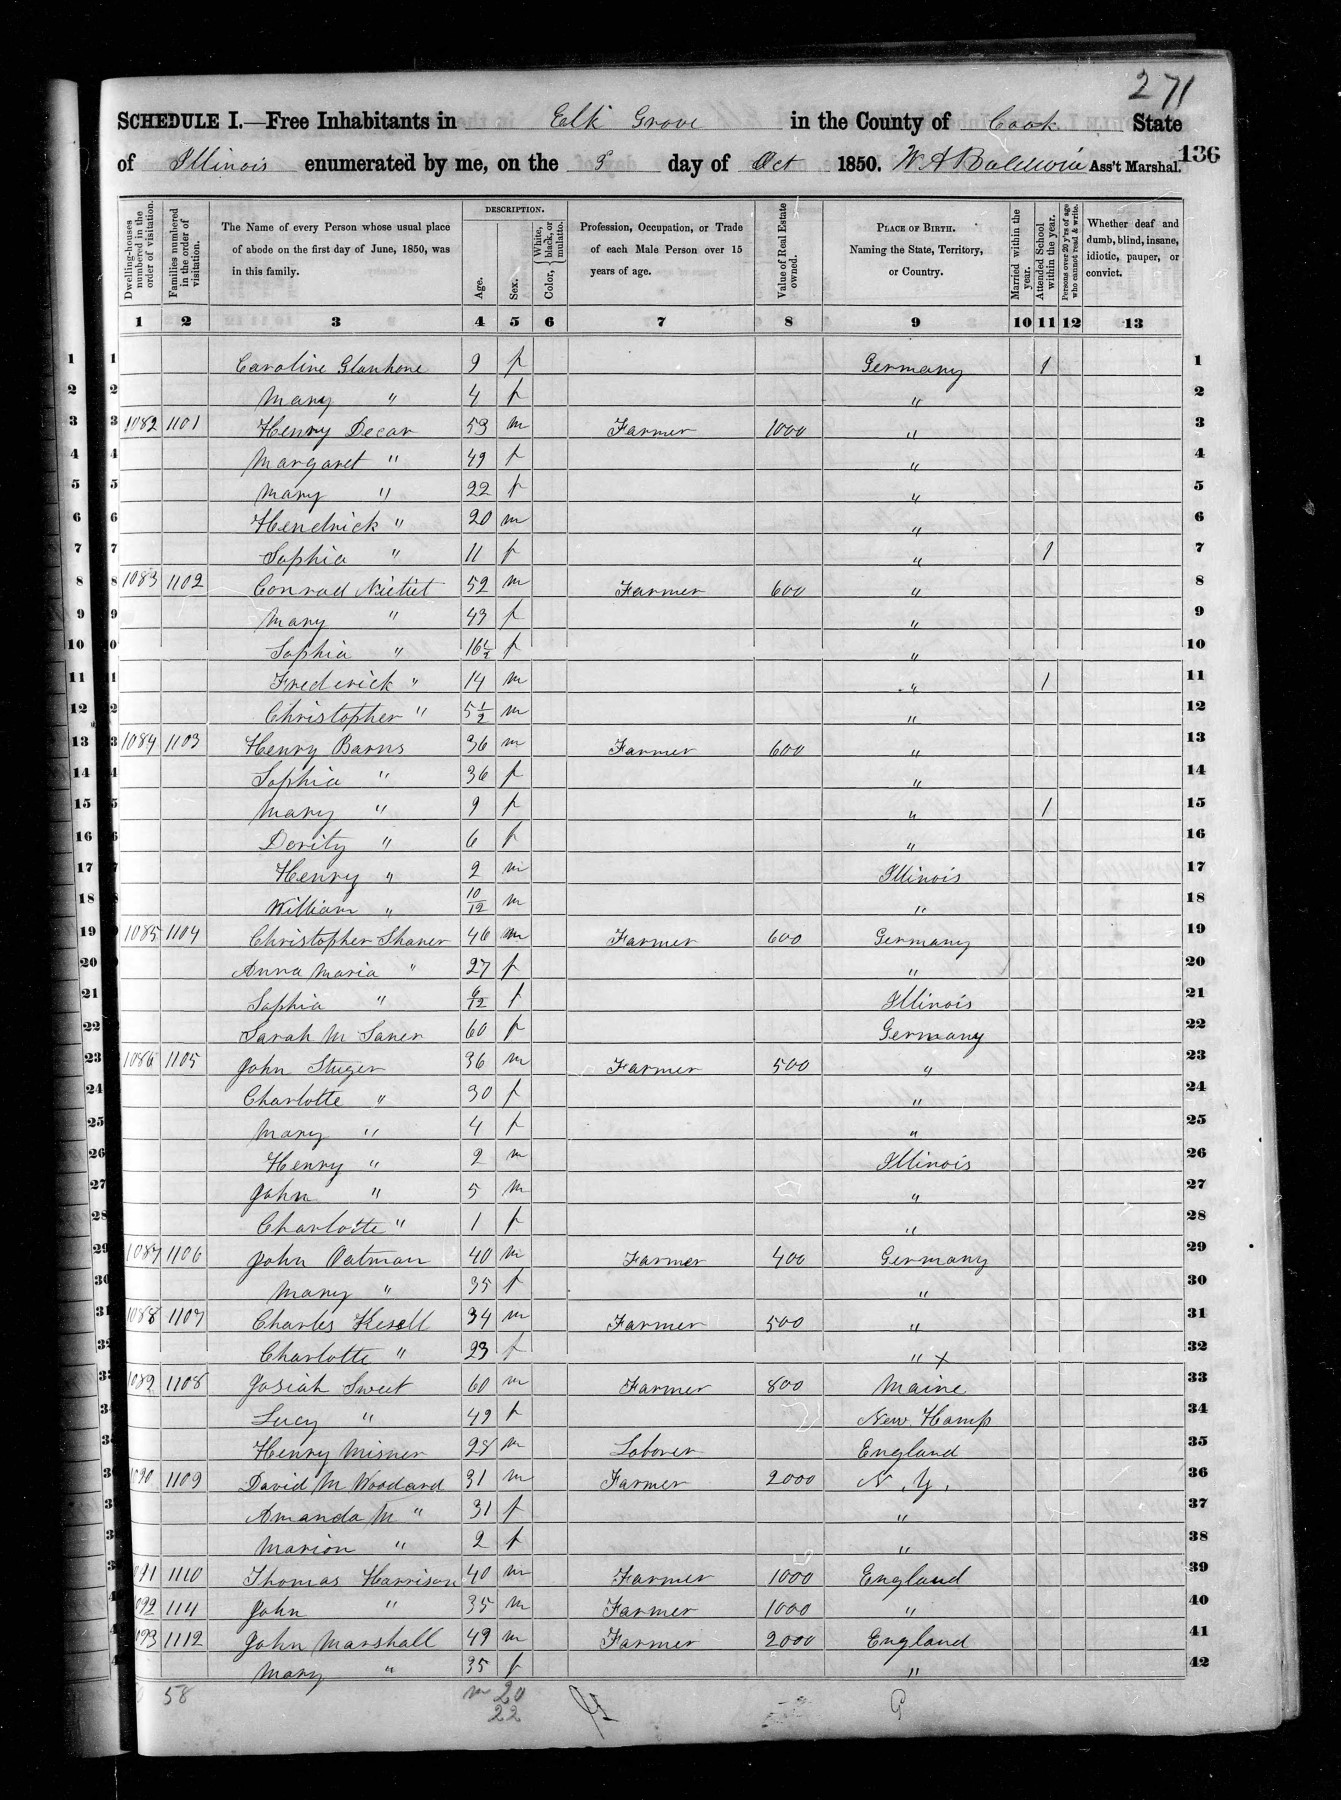 271
SCHEDULE I.—Free Inhabitants in Elk Grove in the County of Cook State
of Illinois enumerated by me, on the 3 day of Oct 1850. W A Baldwin Ass't Marshal.
136
Dwelling-houses numbered in the order of visitation. Families numbered in the order of visitation. The Name of every Person whose usual place of abode on the first day of June, 1850, was in this family. DESCRIPTION. Age. Sex. Color, { White, black, or mulatto. Profession, Occupation, or Trade of each Male Person over 15 years of age. Value of Real Estate owned. PLACE OF BIRTH. Naming the State, Territory, or Country. Married within the year. Attended School within the year. Persons over 20 y'rs of age who cannot read & write. Whether deaf and dumb, blind, insane, idiotic, pauper, or convict.
1 2 3 4 5 6 7 8 9 10 11 12 13
1 Caroline Glanhone 9 f Germany 1 1
2 Mary " 4 f " 2
3 1082 1101 Henry Decar 53 m Farmer 1000 " 3
4 Margaret " 49 f " 4
5 Mary " 22 f " 5
6 Hendrick " 20 m " 6
7 Sophia " 11 f " 1 7
8 1083 1102 Conrad 52 m Farmer 600 " 8
9 Mary " 43 f " 9
10 Sophia " 16½ f " 10
11 Frederick " 14 m " 1 11
12 Christopher " 5 1/2 m " 12
13 1084 1103 Henry Barns 36 m Farmer 600 " 13
14 Sophia " 36 f " 14
15 Mary " 9 f " 1 15
16 Dority " 6 f " 16
17 Henry " 2 m Illinois 17
18 William " 10/12 m " 18
19 1085 1104 Christopher Sharer 46 m Farmer 600 Germany 19
20 Anna Maria " 27 f " 20
21 Sophia " 6/12 f Illinois 21
22 Sarah M Saner 60 f Germany 22
23 1086 1105 John Stuger 36 m Farmer 500 " 23
24 Charlotte " 30 f " 24
25 Mary " 4 f " 25
26 Henry " 2 m Illinois 26
27 John " 5 m " 27
28 Charlotte " 1 f " 28
29 1087 1106 John Oatman 40 m Farmer 400 Germany 29
30 Mary " 35 f " 30
31 1088 1107 Charles Kesell 34 m Farmer 500 " 31
32 Charlotte " 23 f " X 32
33 1089 1108 Josiah Sweet 60 m Farmer 800 Maine 33
34 Lucy " 49 f New Hamp 34
35 Henry Misner 28 m Laborer England 35
36 1090 1109 David M Woodard 31 m Farmer 2000 N. Y. 36
37 Amanda M " 31 f " 37
38 Marion " 2 f " 38
39 1091 1110 Thomas Harrison 40 m Farmer 1000 England 39
40 1092 1111 John " 35 m Farmer 1000 " 40
41 1093 1112 John Marshall 49 m Farmer 2000 England 41
42 Mary " 35 f " 42
58 m 20
22